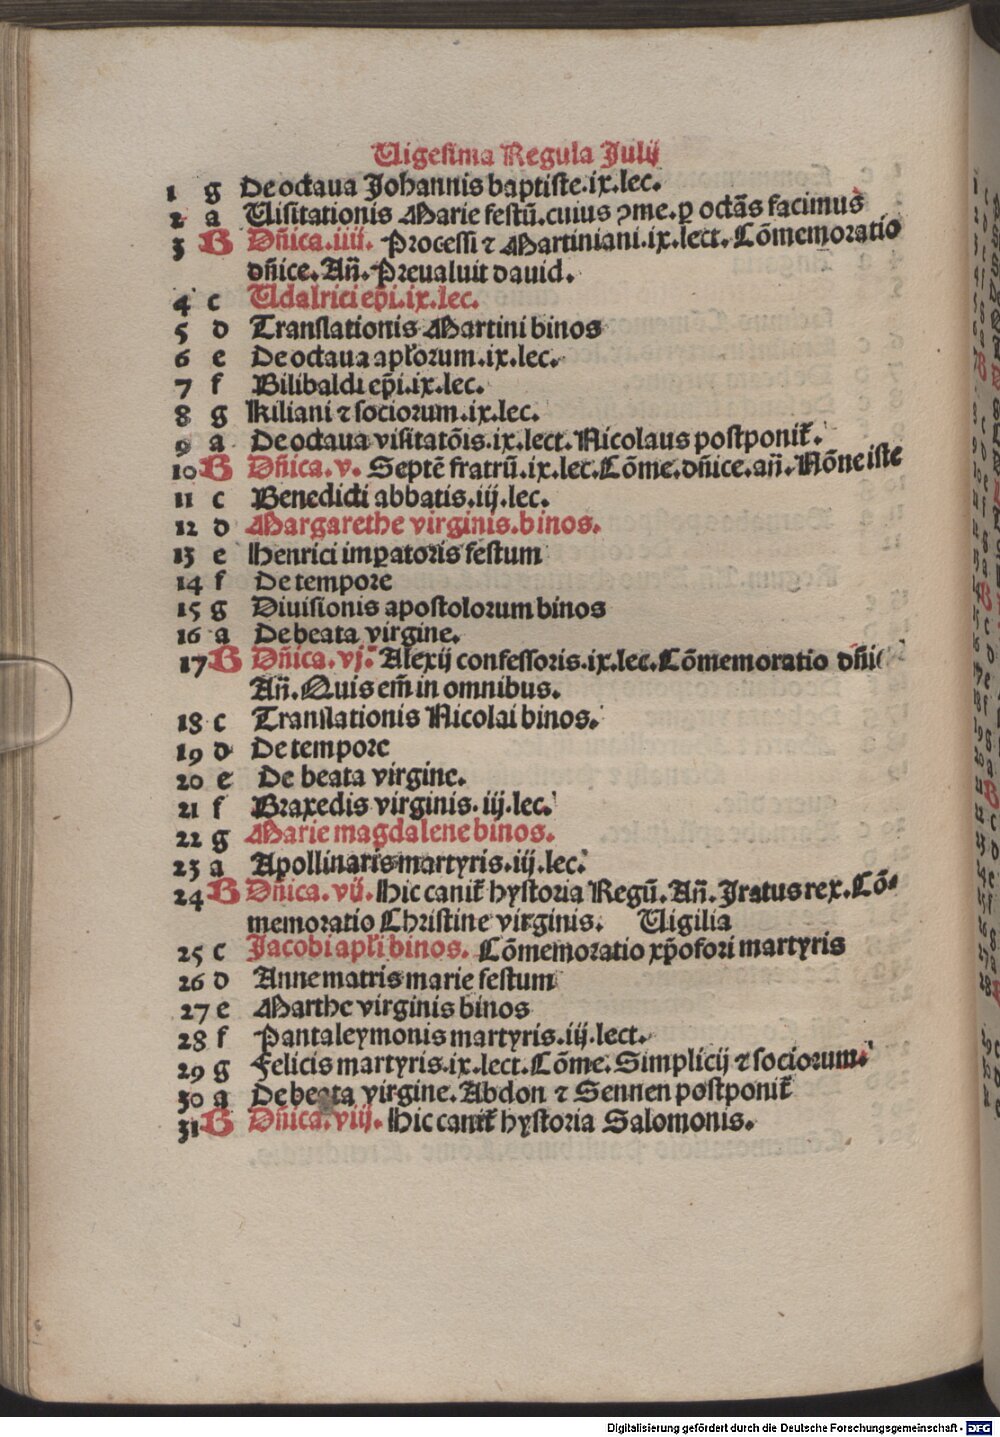 Uigesima Regula Julij
1 g De octaua Johannis baptiste.ix.lec.
2 a Uisitationis Marie festū.cuius ꝯme.ꝑ octās facimus
3 B Dñica.iiij. Processi ⁊ Martiniani.ix.lect.Cōmemoratio
dñice.Añ.Preualuit dauid.
4 c Udalrici ep̄i.ix.lec.
5 d Translationis Martini binos
6 e De octaua apl̄orum.ix.lec.
7 f Bilibaldi ep̄i.ix.lec.
8 g Kiliani ⁊ sociorum.ix.lec.
9 a De octaua visitatōis.ix.lect.Nicolaus postponit̄.
10 B Dñica.v. Septē fratrū.ix.lec.Cōme.dñice.añ.Nōne iste
11 c Benedicti abbatis.iij.lec.
12 d Margarethe virginis.binos.
13 e Henrici imꝑatoris festum
14 f De tempore
15 g Diuisionis apostolorum binos
16 a De beata virgine.
17 B Dñica.vj. Alexij confessoris.ix.lec.Cōmemoratio dñic
Añ.Quis em̄ in omnibus.
18 c Translationis Nicolai binos.
19 d De tempore
20 e De beata virgine.
21 f Braxedis virginis.iij.lec.
22 g Marie magdalene binos.
23 a Apollinaris martyris.iij.lec.
24 B Dñica.vij.Hic canit̄ hystoria Regū.Añ.Iratus rex.Cō-
memoratio Christine virginis. Uigilia
25 c Jacobi apl̄i binos. Cōmemoratio xp̄ofori martyris
26 d Anne matris marie festum
27 e Marthe virginis binos
28 f Pantaleymonis martyris.iij.lect.
29 g Felicis martyris.ix.lect.Cōme.Simplicij ⁊ sociorum.
30 a De beata virgine.Abdon ⁊ Sennen postponit̄
31 B Dñica.viij.Hic canit̄ hystoria Salomonis.
Digitalisierung gefördert durch die Deutsche Forschungsgemeinschaft - DFG